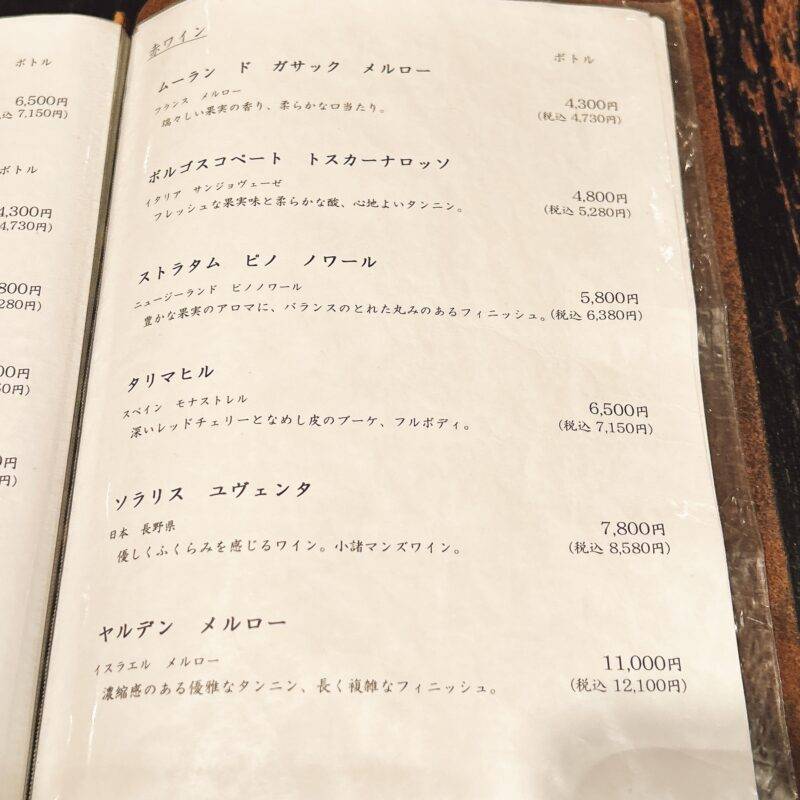 ボトル
6,500円
込 7,150円)
ボトル
4,300円
4,730円)
800円
280円)
00円
50円)
0円
円)
赤ワイン
ボトル
ムーラン ド ガサック メルロー
フランス メルロー
瑞々しい果実の香り、柔らかな口当たり。
4,300円
(税込 4,730円)
ボルゴスコペート トスカーナロッソ
イタリア サンジョヴェーゼ
フレッシュな果実味と柔らかな酸、心地よいタンニン。
4,800円
(税込 5,280円)
ストラタム ピノ ノワール
ニュージーランド ピノノワール
豊かな果実のアロマに、バランスのとれた丸みのあるフィニッシュ。
5,800円
(税込 6,380円)
タリマヒル
スペイン モナストレル
深いレッドチェリーとなめし皮のブーケ、フルボディ。
6,500円
(税込 7,150円)
ソラリス ユヴェンタ
日本 長野県
優しくふくらみを感じるワイン。小諸マンズワイン。
7,800円
(税込 8,580円)
ヤルデン メルロー
イスラエル メルロー
濃縮感のある優雅なタンニン、長く複雑なフィニッシュ。
11,000円
(税込 12,100円)